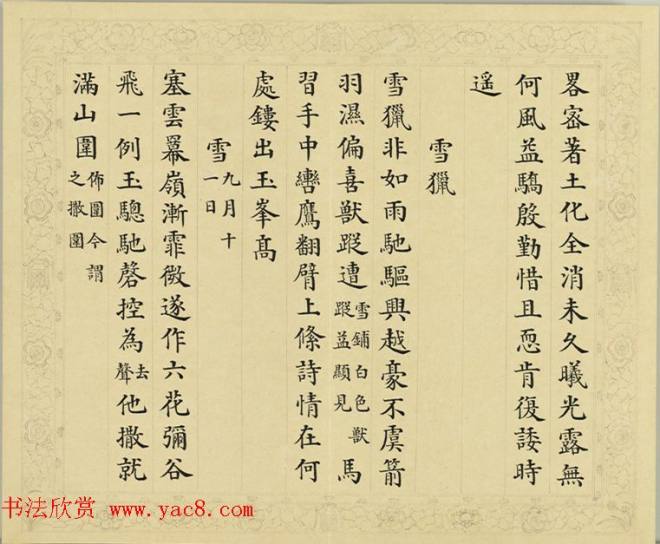 畧密著土化全消未久曦光露無
何風益驕殷勤惜且恧肯復諉時
遥
雪獵
雪獵非如雨馳驅興越豪不虞箭
羽濕偏喜獸蹤遭雪鋪白色獸蹤益顯見馬
習手中轡鷹翻臂上絛詩情在何
處鏤出玉峯髙
雪九月十一日
塞雲羃嶺漸霏微遂作六花彌谷
飛一例玉驄馳磬控為去聲他撒就
滿山圍佈圍今謂之撒圍
书法欣赏 www.yac8.com